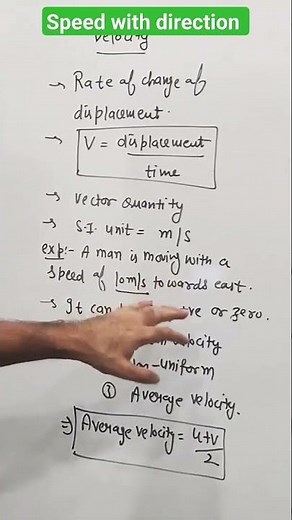 Speed with direction
Velocity
→ Rate of change of
displacement.
→ V = displacement
time
→ Vector quantity
→ S.I. unit = m/s
exp:- A man is moving with a
speed of 10m/s towards east.
→ It can or zero.
velocity
uniform
③ Average velocity.
⇒ Average velocity = u+v
2